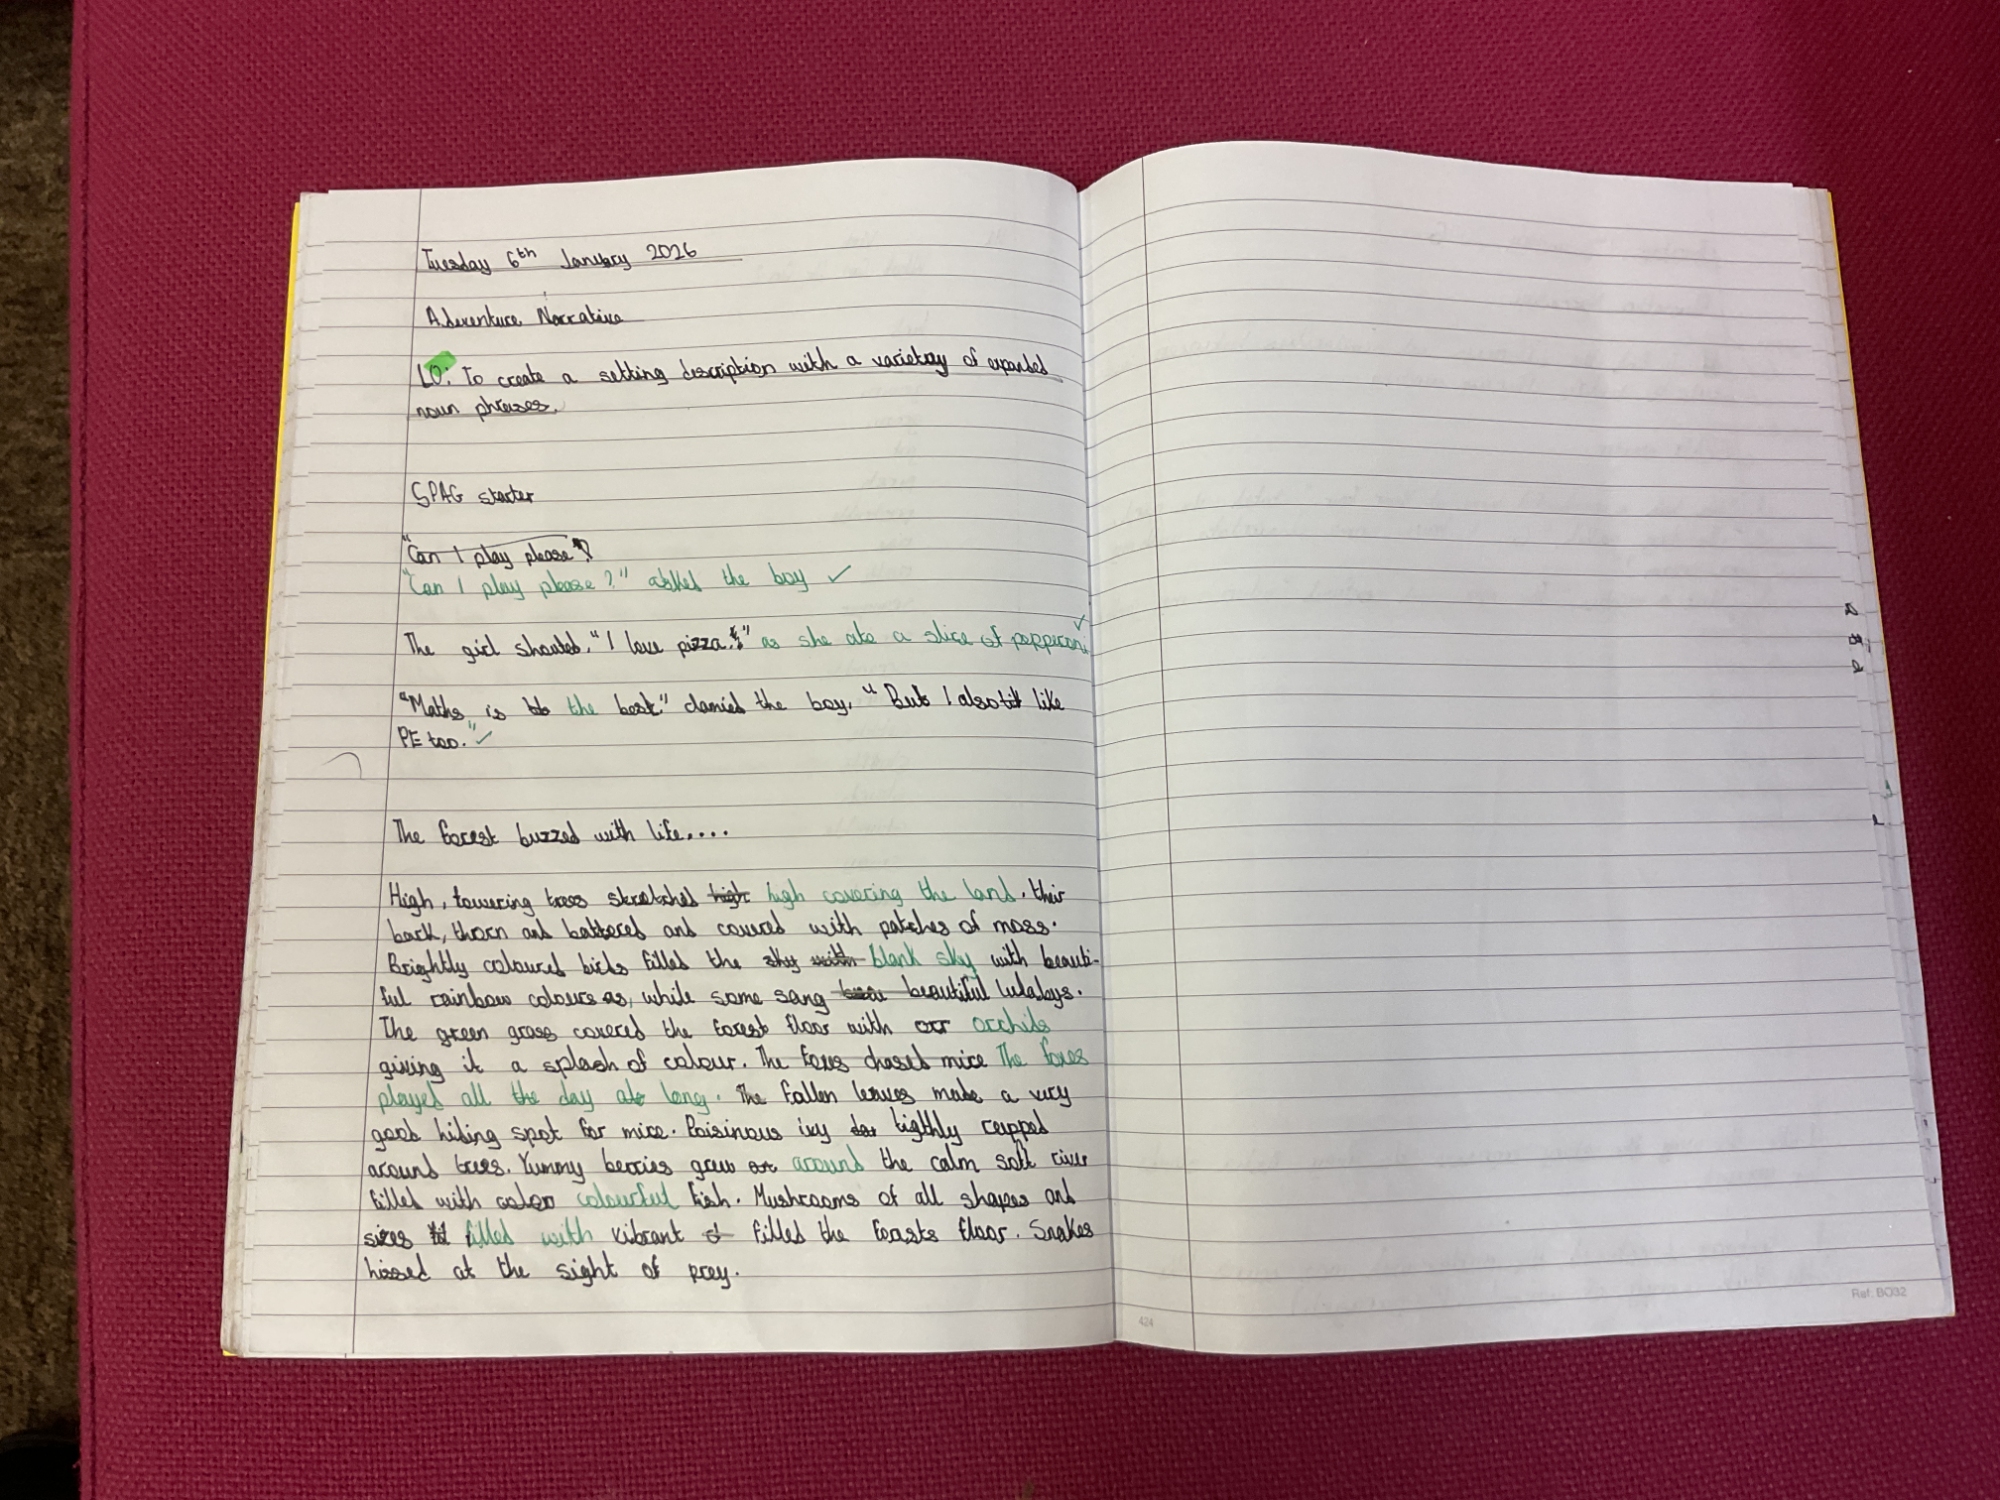 Tuesday 6th January 2026
Adventure Narrative
LO: To create a setting description with a variety of expanded
noun phrases.
SPAG starter
"Can I play please"?
"Can I play please?" asked the boy ✓
The girl shouted, "I love pizza!" as she ate a slice of pepperoni. ✓
"Maths is the best." the boy. "But I also like
PE too." ✓
The forest buzzed with life....
High, towering trees stretched high high covering the land. their
bark, thorn and battered and covered with patches of moss.
Brightly coloured birds filled the sky with blank sky with beauti-
ful rainbow colours as, while some sang beautiful lulabys.
The green grass covered the forest floor with orchids
giving it a splash of colour. The foxes chased mice The foxes
played all the day long. The fallen leaves made a very
good hiding spot for mice. Poisinous ivy tigthly
around trees. Yummy berries grew on around the calm soft river
filled with color colourful fish. Mushrooms of all shapes and
sizes filled with vibrant filled the forests floor. Snakes
hissed at the sight of prey.
424
Ref: BO32